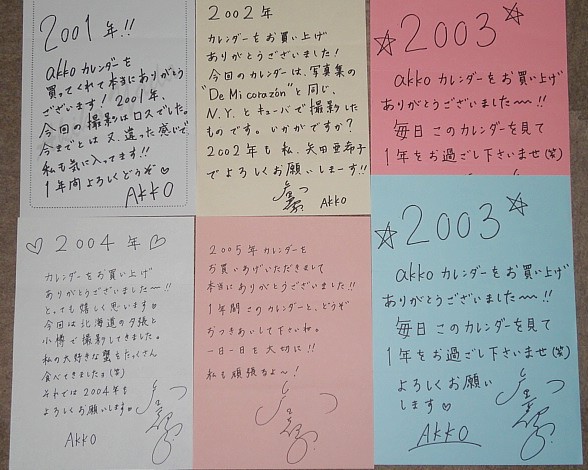 2001年!!
akkoカレンダーを
買ってくれて本当にありがとう
ございます!2001年、
今回の撮影はロスでした。
今までとは又、違った感じで、
私も気に入ってます!!
1年間よろしくどうぞ♥
AKKO
2002年
カレンダーをお買い上げ
ありがとうございました!
今回のカレンダーは、写真集の
"De Mi corazón"と同じ、
N.Y.とキューバで撮影した
ものです。いかがですか?
2002年も私、矢田亜希子
でよろしくお願いしまーす!!
AKKO
☆2003☆
akkoカレンダーをお買い上げ
ありがとうございました〜〜!!
毎日このカレンダーを見て
1年をお過ごし下さいませ(笑)
♡2004年♡
カレンダーをお買い上げ
ありがとうございました〜!!
とっても嬉しく思います。
今回は北海道の夕張と
小樽で撮影してきました。
私の大好きな蟹をたくさん
食べてきましたョ(笑)
それでは2004年も
よろしくお願いします♥
AKKO
2005年カレンダーを
お買いあげいただきまして
本当にありがとうございました!!
1年間このカレンダーと、どうぞ
おつきあいして下さいね。
一日一日を大切に!!
私も頑張るよ〜!
☆2003☆
akkoカレンダーをお買い上げ
ありがとうございました〜〜!!
毎日このカレンダーを見て
1年をお過ごし下さいませ(笑)
よろしくお願い
します♡
AKKO